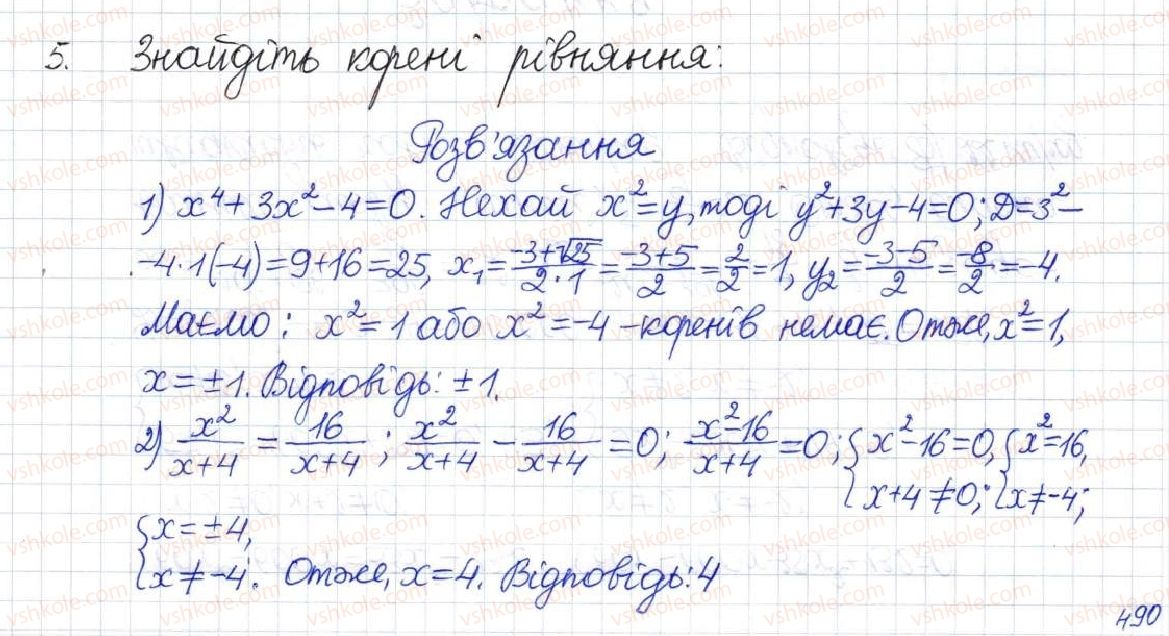 5. Знайдіть корені рівняння:
Розв'язання
1) x⁴+3x²-4=0. Нехай x²=y, тоді y²+3y-4=0; D=3²-
-4·1(-4)=9+16=25, x₁=(-3+√25)/(2·1)=(-3+5)/2=2/2=1, y₂=(-3-5)/2=-8/2=-4.
Маємо: x²=1 або x²=-4 -коренів немає. Отже, x²=1,
x=±1. Відповідь: ±1.
2) x²/(x+4)=16/(x+4); x²/(x+4)-16/(x+4)=0; (x²-16)/(x+4)=0; {x²-16=0, {x²=16,
x+4≠0; x≠-4;
{x=±4,
x≠-4. Отже, x=4. Відповідь: 4
490
vshkole.com